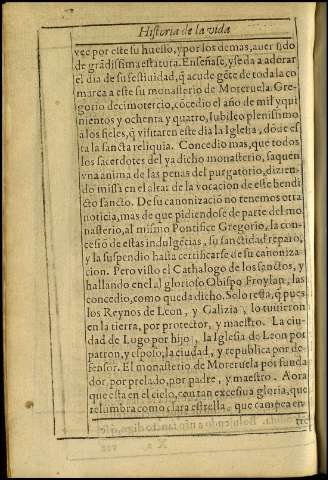 Historia de la vida
vee por este su huesso, y por los demas, auer sido
de grãdissima estatura. Enseñase, y se da a adorar
el dia de su festiuidad, q̃ acude gẽte de toda la co
marca a este su monasterio de Moreruela. Gre-
gorio decimotercio, cõcedio el año de mil y qui
nientos y ochenta y quatro, Iubileo plenissimo
a los fieles, q̃ visitarẽ este dia la Iglesia, dõde es
ta la sancta reliquia. Concedio mas, que todos
los sacerdotes del ya dicho monasterio, saquen
vna anima de las penas del purgatorio, dizien-
do missa en el altar de la vocacion de este bendi
cto sancto. De su canonizaciõ no tenemos otra
noticia, mas de que pidiendose de parte del mo
nasterio, al mismo Pontifice Gregorio, la con-
cesiõ de estas indulgẽcias, su sanctidad reparo,
y la suspendio hasta certificarse de su canoniza-
cion. Pero visto el Cathalogo de los sanctos, y
hallando en el al glorioso Obispo Froylan, las
concedio, como queda dicho. Solo resta, q̃ pues
los Reynos de Leon, y Galizia, lo tuuieron
en la tierra, por protector, y maestro. La ciu-
dad de Lugo por hijo, la Iglesia de Leon por
patron, y esposo, la ciudad, y republica por de-
fensor. El monasterio de Moreruela por funda
dor, por prelado, por padre, y maestro. Aora
que esta en el cielo, con tan excesiua gloria, que
relumbra como clara estrella, que campea en